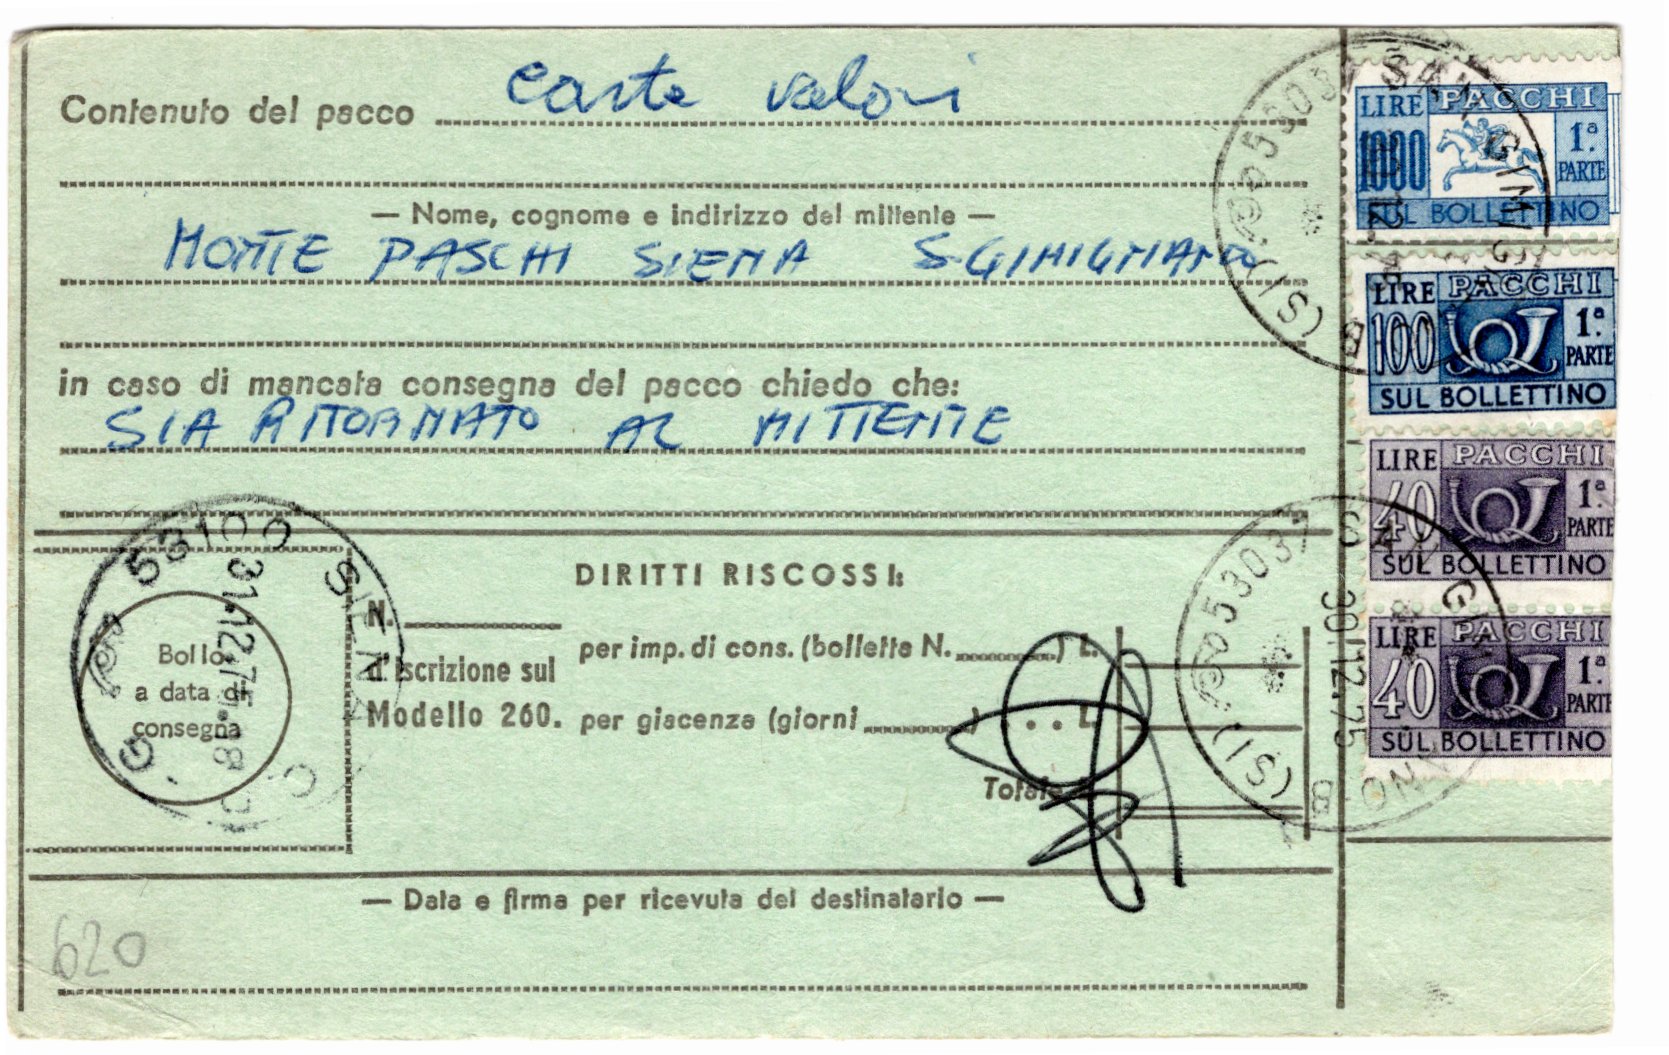 Contenuto del pacco carte valori
— Nome, cognome e indirizzo del mittente —
MONTE PASCHI SIENA S. GIMIGNANO
in caso di mancata consegna del pacco chiedo che:
SIA RITORNATO AL MITTENTE
DIRITTI RISCOSSI:
N.
d'iscrizione sul
Modello 260.
per imp. di cons. (bollette N. ) L.
per giacenza (giorni ) . . L.
Totale
Bollo
a data di
consegna
53100 SIENA
31.12.75.18
— Data e firma per ricevuta del destinatario —
620
LIRE PACCHI
1000 1ª PARTE
SUL BOLLETTINO
LIRE PACCHI
100 1ª PARTE
SUL BOLLETTINO
LIRE PACCHI
40 1ª PARTE
SUL BOLLETTINO
LIRE PACCHI
40 1ª PARTE
SUL BOLLETTINO
53037 SAN GIMIGNANO (SI) B
53037 SAN GIMIGNANO (SI) B
30.12.75